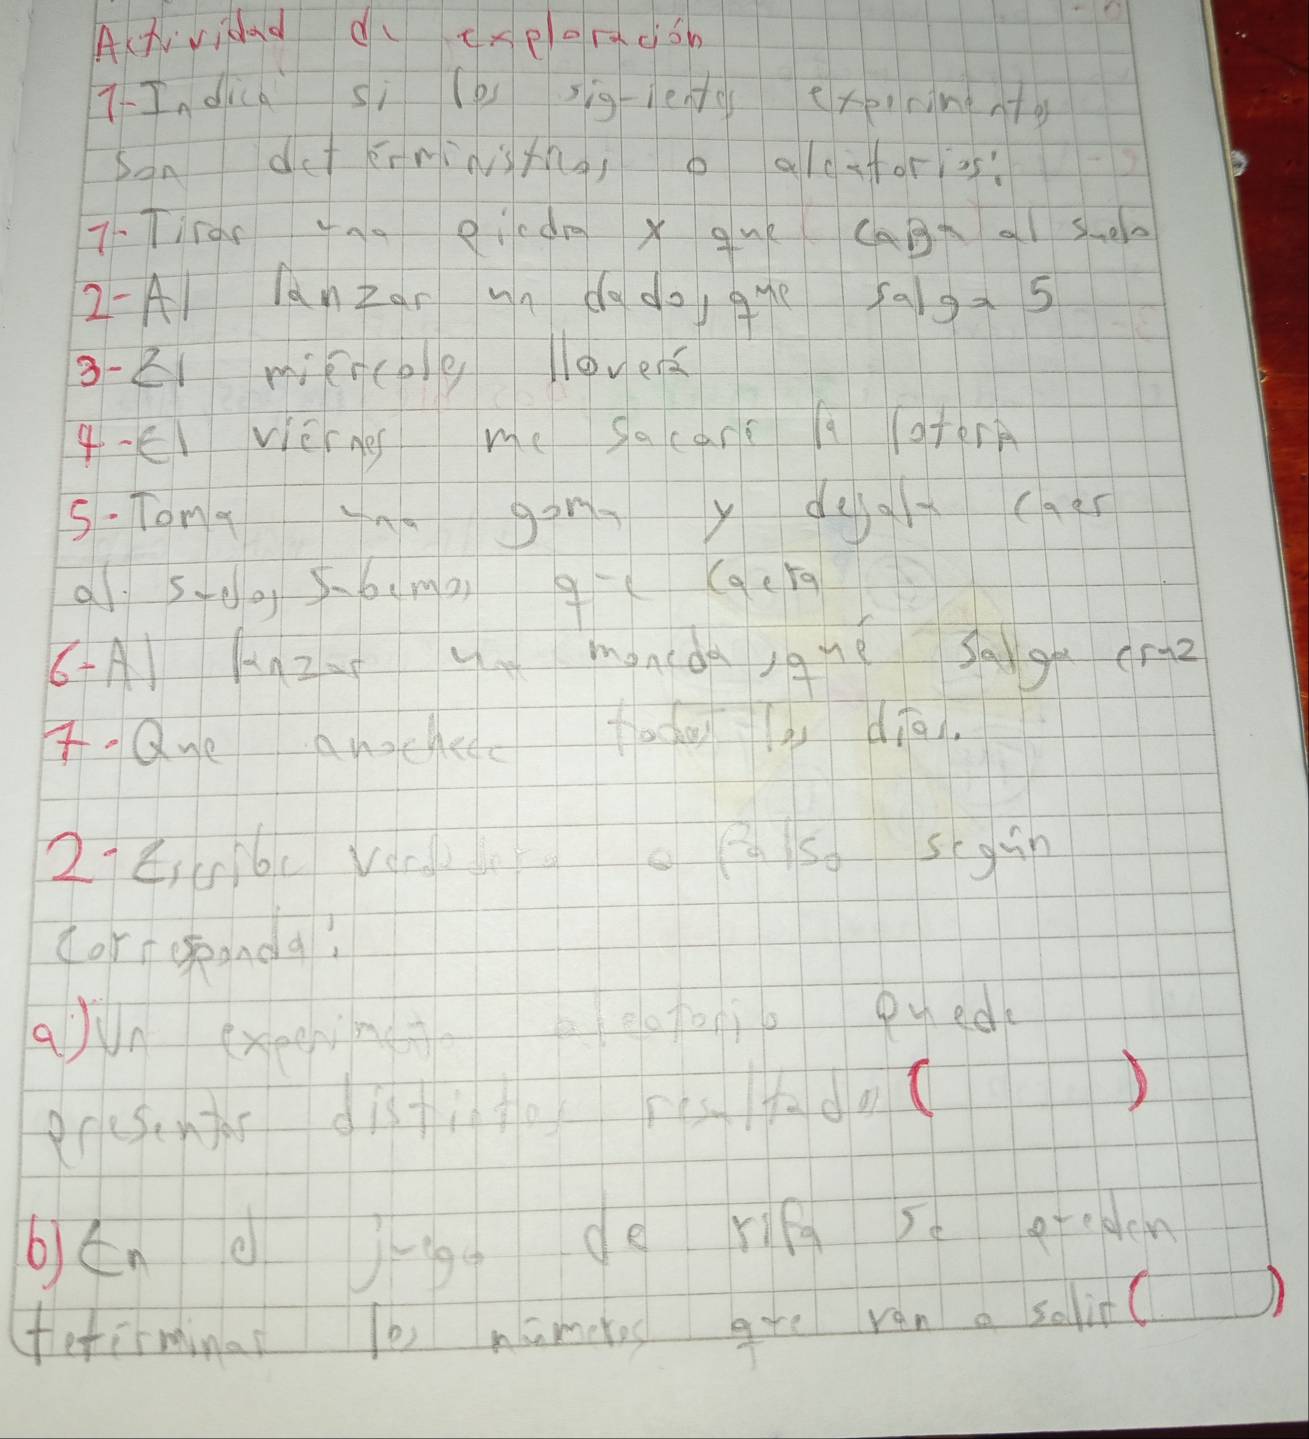 Actividad de exploración
1-Indica si los siguientes experimentos
son determinístnos o aleatorios:
1-Tirar una piedra x que caiga al suelo
2-Al lanzar un dado, que salga 5
3-El miércoles lloverá
4-El viérnes me sacaré la lotería
5-Toma una goma y dejala caer
al suelo, sabemos que caera
6-Al lanzar una moneda, qué salga cruz
7-Que anochece todos los días.
2-Escribe verdadero o falso según
corresponda:
a) Un experimento aleatorio puede
presentar distintos resultados ( )
b) En el juego de rifa se pueden
teterminar los números que van a salir ( )